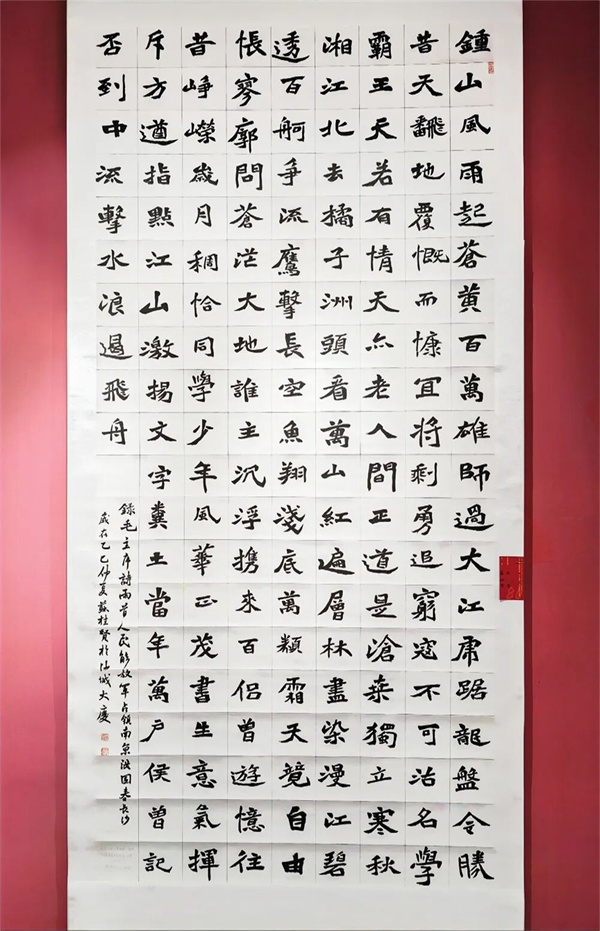 鍾山風雨起蒼黃百萬雄師過大江虎踞龍盤今勝
昔天翻地覆慨而慷宜將剩勇追窮寇不可沽名學
霸王天若有情天亦老人間正道是滄桑獨立寒秋
湘江北去橘子洲頭看萬山紅遍層林盡染漫江碧
透百舸爭流鷹擊長空魚翔淺底萬類霜天競自由
悵寥廓問蒼茫大地誰主沉浮携來百侶曾遊憶往
昔崢嶸歲月稠恰同學少年風華正茂書生意氣揮
斥方遒指點江山激揚文字糞土當年萬户侯曾記
否到中流擊水浪遏飛舟
錄毛主席詩兩首人民解放軍占領南京沁园春長沙
歲在乙巳仲夏蘇桂賢於油城大慶